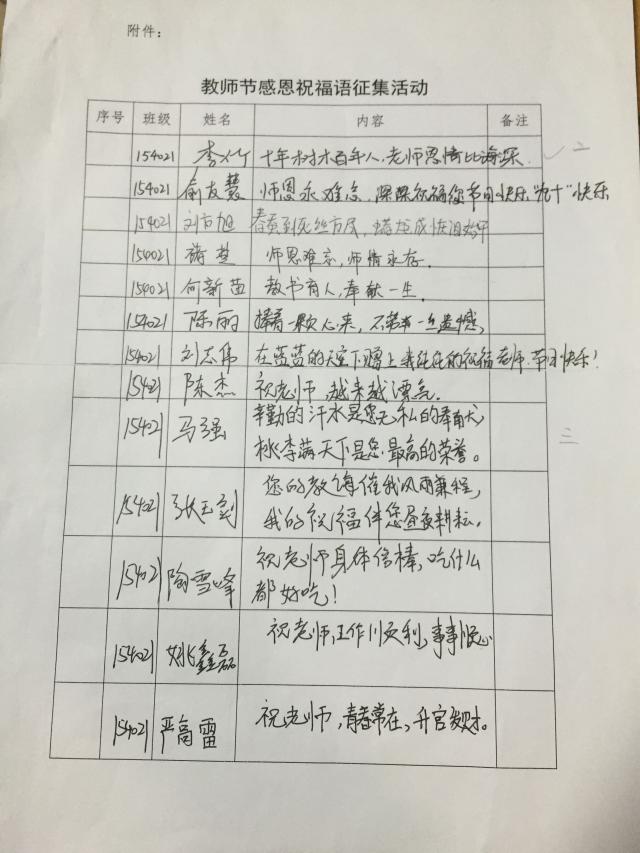 附件：
教师节感恩祝福语征集活动
序号 班级 姓名 内容 备注
154021 李竹 十年树木百年人，老师恩情比海深 二
154021 俞友慧 师恩永难忘，深深祝福您节日快乐"九十"快乐
154021 刘方旭 春蚕到死丝方尽，蜡炬成灰泪始干
154021 蒋楚 师恩难忘，师情永存．
154021 何新苗 教书育人，奉献一生．
154021 陈丽 捧着一颗心来，不带一丝遗憾，
154021 刘志伟 在蓝蓝的天空下 上我 的祝福老师，节日快乐！
154021 陈杰 祝老师，越来越漂亮．
154021 马强 辛勤的汗水是您无私的奉献， 三
桃李满天下是您最高的荣誉。
154021 张玉 您的教诲催我风雨兼程，
我的祝福伴您昼夜耕耘。
154021 陶雪峰 祝老师身体倍棒，吃什么
都好吃！
154021 姚鑫磊 祝老师，工作顺利，事事顺心
154021 严高雷 祝老师，青春常在，升官发财。